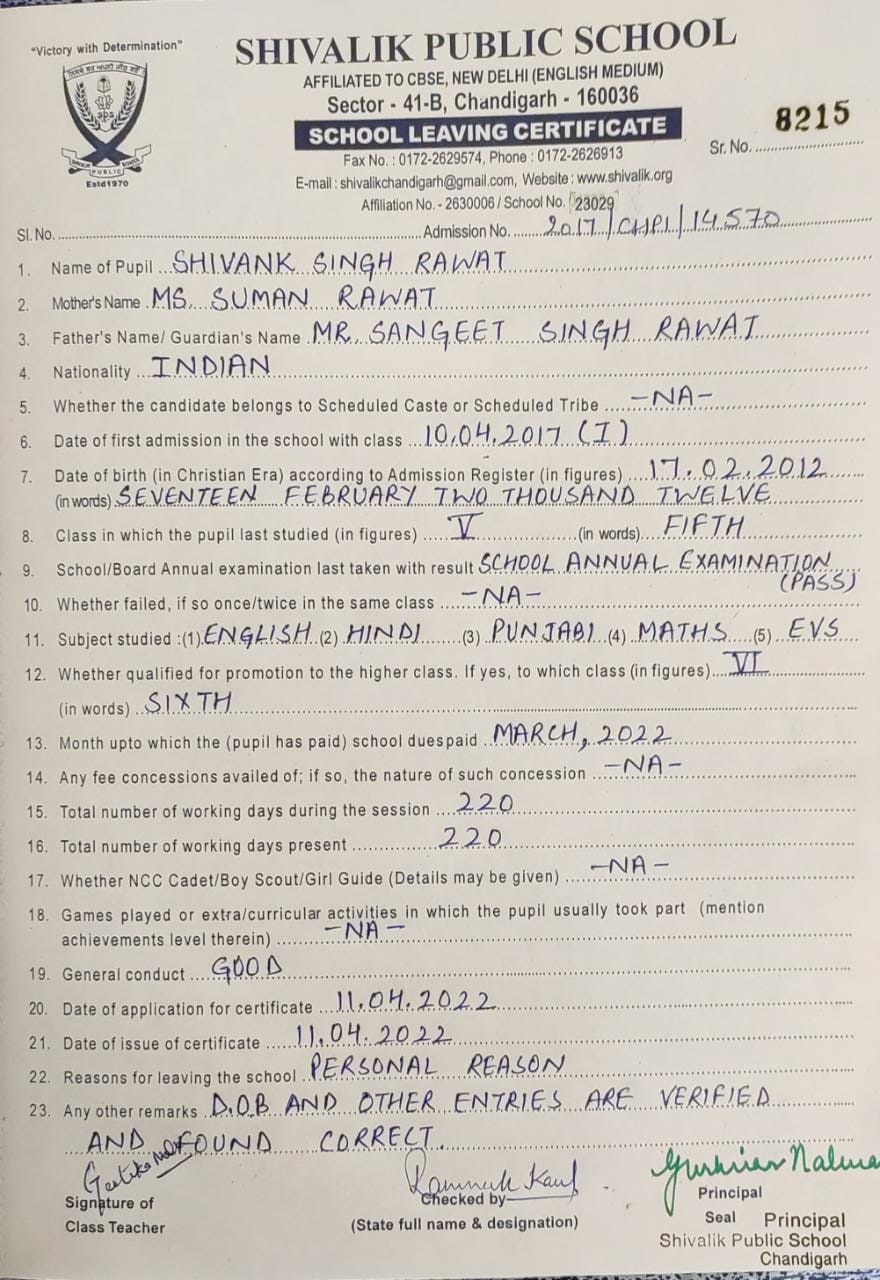 "Victory with Determination"
SHIVALIK PUBLIC SCHOOL
AFFILIATED TO CBSE, NEW DELHI (ENGLISH MEDIUM)
Sector - 41-B, Chandigarh - 160036
SCHOOL LEAVING CERTIFICATE
8215
Sr. No.
Fax No. : 0172-2629574, Phone : 0172-2626913
E-mail : shivalikchandigarh@gmail.com, Website : www.shivalik.org
Affiliation No. - 2630006 / School No. 23029
sps
PUBLIC
Estd1970
Sl. No. Admission No. 2017/CHPI/14570
1. Name of Pupil SHIVANK SINGH RAWAT
2. Mother's Name MS. SUMAN RAWAT
3. Father's Name/ Guardian's Name MR. SANGEET SINGH RAWAT
4. Nationality INDIAN
5. Whether the candidate belongs to Scheduled Caste or Scheduled Tribe -NA-
6. Date of first admission in the school with class 10.04.2017 (I)
7. Date of birth (in Christian Era) according to Admission Register (in figures) 17.02.2012
(in words) SEVENTEEN FEBRUARY TWO THOUSAND TWELVE
8. Class in which the pupil last studied (in figures) V (in words) FIFTH
9. School/Board Annual examination last taken with result SCHOOL ANNUAL EXAMINATION
(PASS)
10. Whether failed, if so once/twice in the same class -NA-
11. Subject studied :(1) ENGLISH (2) HINDI (3) PUNJABI (4) MATHS (5) EVS
12. Whether qualified for promotion to the higher class. If yes, to which class (in figures) VI
(in words) SIXTH
13. Month upto which the (pupil has paid) school duespaid MARCH, 2022
14. Any fee concessions availed of; if so, the nature of such concession -NA-
15. Total number of working days during the session 220
16. Total number of working days present 220
17. Whether NCC Cadet/Boy Scout/Girl Guide (Details may be given) -NA-
18. Games played or extra/curricular activities in which the pupil usually took part (mention
achievements level therein) -NA-
19. General conduct GOOD
20. Date of application for certificate 11.04.2022
21. Date of issue of certificate 11.04.2022
22. Reasons for leaving the school PERSONAL REASON
23. Any other remarks D.O.B AND OTHER ENTRIES ARE VERIFIED
AND FOUND CORRECT.
Signature of
Class Teacher
Checked by
(State full name & designation)
Principal
Seal Principal
Shivalik Public School
Chandigarh